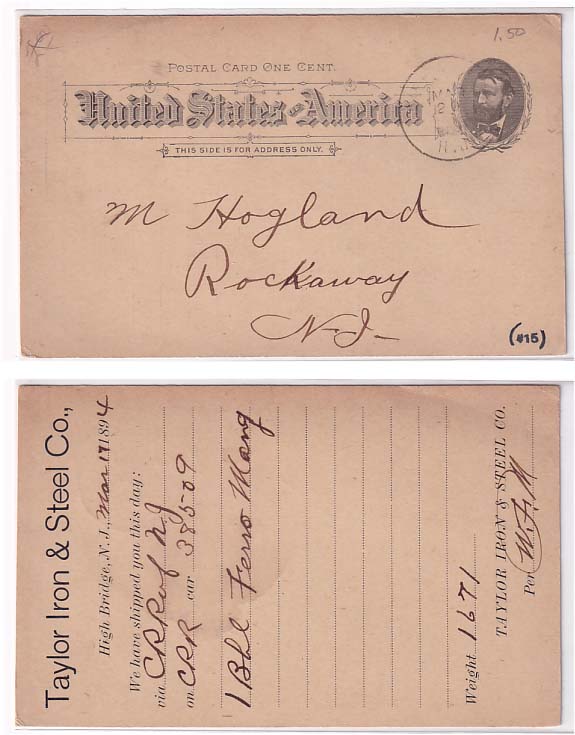 1.50
POSTAL CARD ONE CENT.
United States of America
THIS SIDE IS FOR ADDRESS ONLY.
M Hogland
Rockaway
N.J.
(#15)
Taylor Iron & Steel Co.,
High Bridge, N. J., Mar 17 1894
We have shipped you this day:
via CRR of NJ
on CRR car 385-09
1 Bbl Ferro Mang
Weight 1671
TAYLOR IRON & STEEL CO.
Per